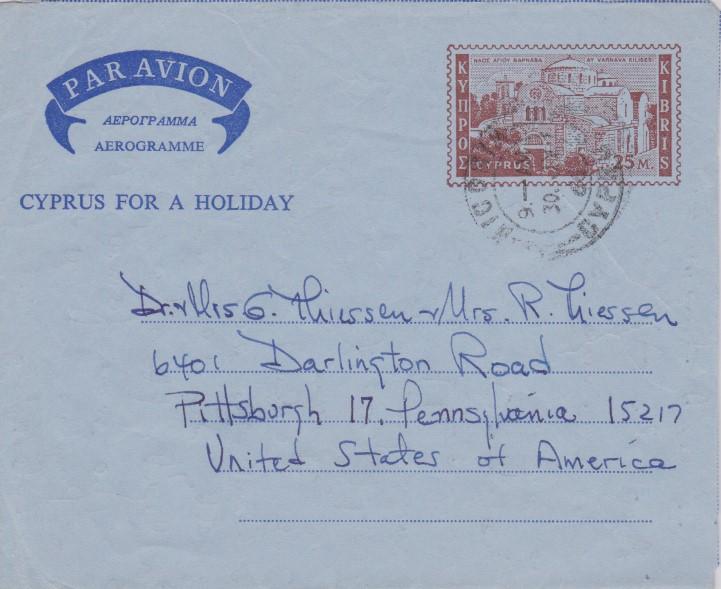 PAR AVION
ΑΕΡΟΓΡΑΜΜΑ
AEROGRAMME
CYPRUS FOR A HOLIDAY
ΝΑΟΣ ΑΓΙΟΥ ΒΑΡΝΑΒΑ AY VARNAVA KILISESI
ΚΥΠΡΟΣ
KIBRIS
CYPRUS
25 M.
Dr. & Mrs G. Thiessen & Mrs. R. Thiessen
6401 Darlington Road
Pittsburgh 17, Pennsylvania 15217
United States of America